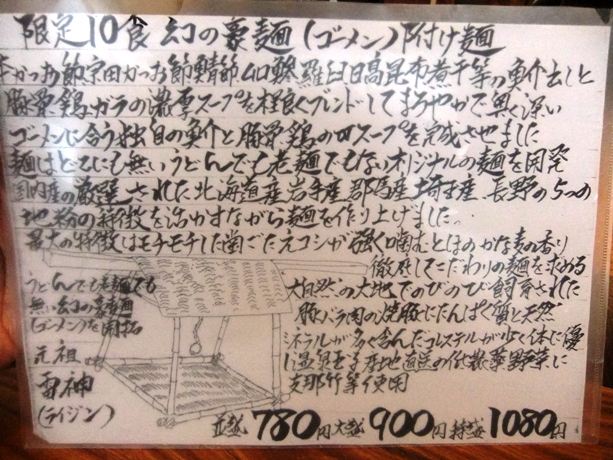 限定10食 幻の豪麺(ゴーメン)付け麺
本かつお節宗田かつお節鯖節ムロ鰺羅臼日高昆布煮干等の魚介出しと
豚骨鶏ガラの濃厚スープを程良くブレンドしてまろやかで奥深い
ゴーメンに合う独自の魚介と豚骨鶏のWスープを完成させました
麺はどこにも無いうどんでも老麺でもないオリジナルの麺を開発
国内産の厳選された北海道産岩手産群馬産埼玉産 長野の5つの
地粉の特徴を活かすながら麺を作り上げました。
最大の特徴はモチモチした歯ごたえコシが強く噛むとほのかな麦の香り
徹底してこだわりの麺を求める
大自然の大地でのびのび飼育された
豚バラ肉の焼豚にたんぱく質と天然
ミネラルが多く含んだコレステルが少く体に優
し温泉玉子産地直送の低農薬野菜に
支那竹等使用
うどんでも老麺でも
無い幻の豪麺
(ゴーメン)を開拓
元祖
雷神
(ライジン)
並盛780円大盛900円特盛1080円